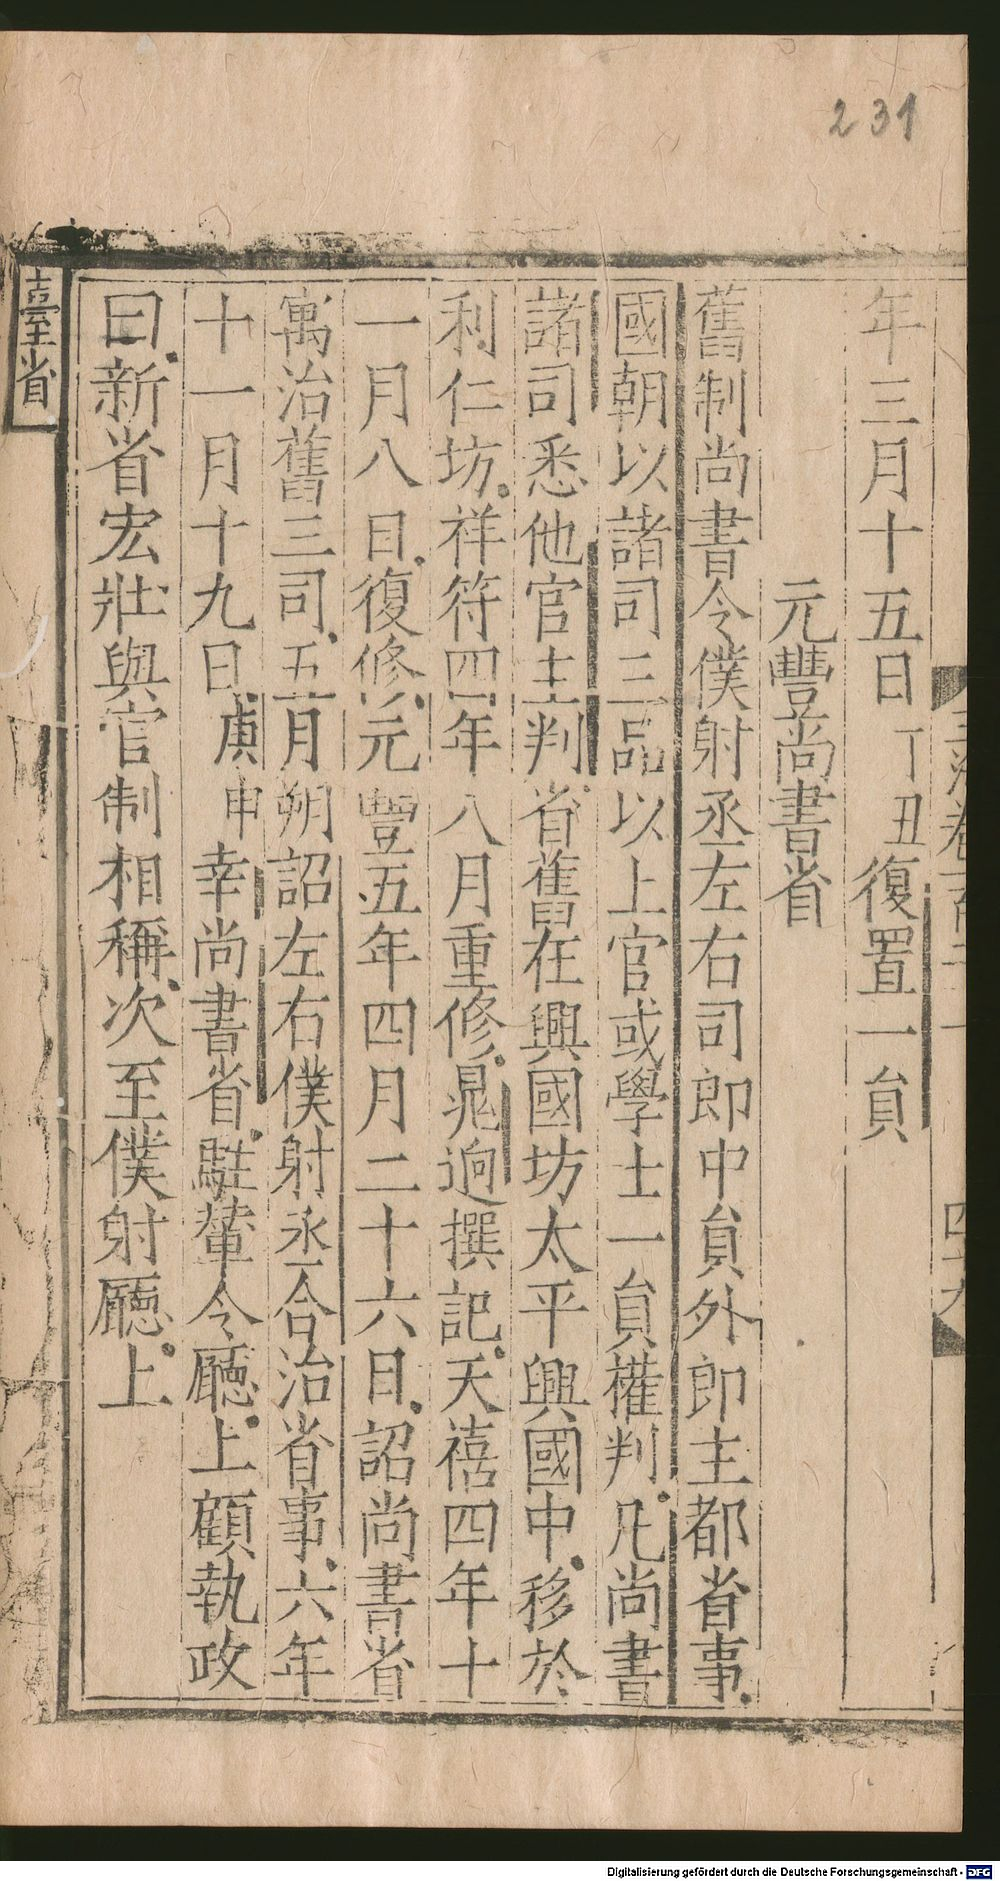 231
年三月十五日丁丑復置一員
元豐尚書省
舊制尚書令僕射丞左右司郎中員外郎主都省事
國朝以諸司三品以上官或學士一員權判凡尚書
諸司悉他官主判省舊在興國坊太平興國中移於
利仁坊祥符四年八月重修晁迥撰記天禧四年十
一月八日復修元豐五年四月二十六日詔尚書省
寓治舊三司五月朔詔左右僕射丞合治省事六年
十一月十九日庚申幸尚書省駐輦令廳上顧執政
曰新省宏壯與官制相稱次至僕射廳上
臺省
Digitalisierung gefördert durch die Deutsche Forschungsgemeinschaft - DFG